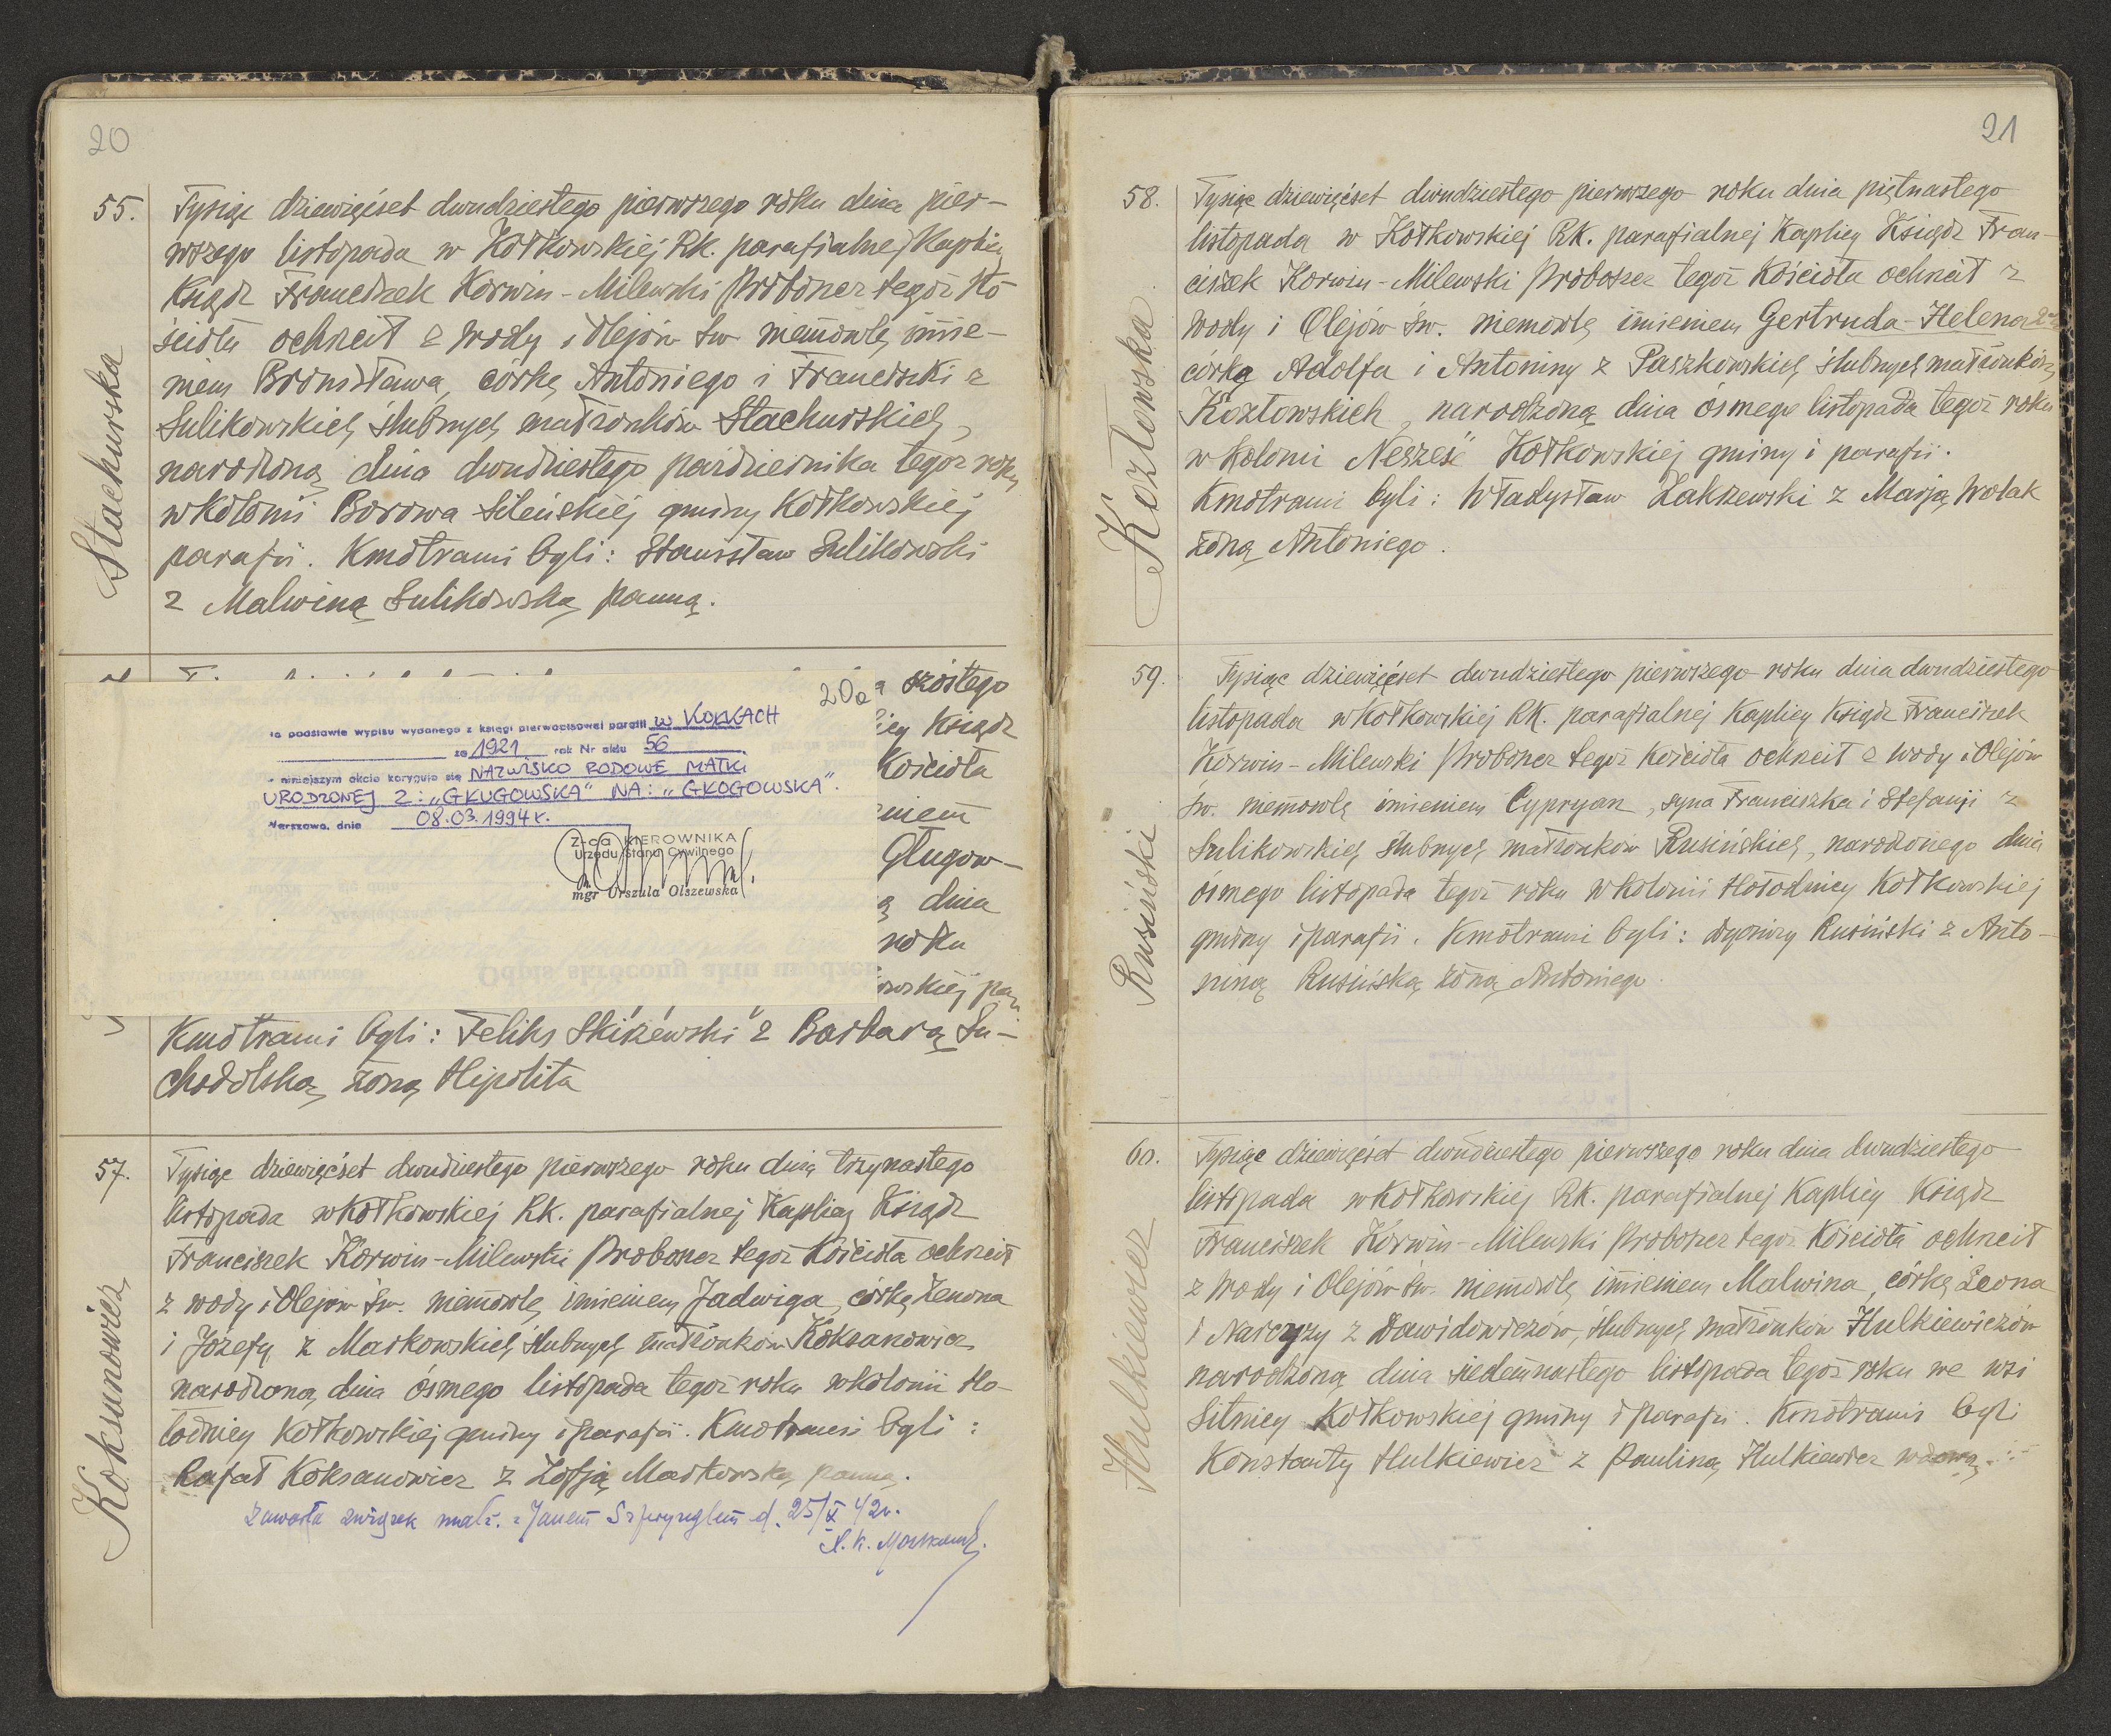 20
55.
Stachurska
Tysiąc dziewięćset dwudziestego pierwszego roku dnia pier-
wszego listopada w Kołkowskiej RK. parafialnej Kaplicy
Ksiądz Franciszek Korwin-Milewski Proboszcz tegoż Ko
ścioła ochrcił z wody i Olejów św niemowlę imie-
niem Bronisława, córkę Antoniego i Franciszki z
Sulikowskich, ślubnych małżonków Stachurskich,
narodzoną dnia dwudziestego października tegoż roku
w Kolonii Borowa Sileńskiej gminy Kołkowskiej
parafii. Kmotrami byli: Stanisław Sulikowski
z Malwiną Sulikowską panną.
szóstego
20a
Ksiądz
Kościoła
Gługow-
dnia
roku
na podstawie wypisu wydanego z księgi pierwopisowej parafii w KOŁKACH
za 1921 rok Nr aktu 56
niniejszym akcie koryguje się NAZWISKO RODOWE MATKI
URODZONEJ Z: „GŁUGOWSKA" NA: „GŁOGOWSKA".
Warszawa, dnia 08.03.1994 r.
Z-ca KIEROWNIKA
Urzędu Stanu Cywilnego
mgr Urszula Olszewska
Kmotrami byli: Feliks Skiżewski z Barbarą Su-
chodolską, żoną Hipolita
57.
Koksanowicz
Tysiąc dziewięćset dwudziestego pierwszego roku dnia trzynastego
listopada w Kołkowskiej RK. parafialnej Kaplicy Ksiądz
Franciszek Korwin-Milewski Proboszcz tegoż Kościoła ochrcił
z wody i Olejów św. niemowlę imieniem Jadwiga, córkę Zenona
i Józefy z Markowskich, ślubnych małżonków Koksanowicz
narodzoną dnia ósmego listopada tegoż roku w kolonii Ho-
łodnicy Kołkowskiej gminy i parafii. Kmotrami byli:
Rafał Koksanowicz z Zofją Markowską panną.
Zawarła związek małż. z Janem d. 25/X 42r.
21
58.
Kozłowska
Tysiąc dziewięćset dwudziestego pierwszego roku dnia piętnastego
listopada w Kołkowskiej RK. parafialnej Kaplicy Ksiądz Fran-
ciszek Korwin-Milewski Proboszcz tegoż Kościoła ochrcił z
wody i Olejów św. niemowlę imieniem Gertruda-Helena
córkę Adolfa i Antoniny z Paszkowskich, ślubnych małżonków
Kozłowskich, narodzoną dnia ósmego listopada tegoż roku
w Kolonii Nerześć Kołkowskiej gminy i parafii.
Kmotrami byli: Władysław Zakrzewski z Marją Wolak
żoną Antoniego.
59.
Rusiński
Tysiąc dziewięćset dwudziestego pierwszego roku dnia dwudziestego
listopada w Kołkowskiej RK. parafialnej Kaplicy Ksiądz Franciszek
Korwin-Milewski Proboszcz tegoż Kościoła ochrcił z wody i Olejów
św. niemowlę imieniem Cypryan, syna Franciszka i Stefanji z
Sulikowskich, ślubnych małżonków Rusińskich, narodzonego dnia
ósmego listopada tegoż roku w kolonii Hołodnicy Kołkowskiej
gminy i parafii. Kmotrami byli: Dyonizy Rusiński z Anto-
niną Rusińską żoną Antoniego.
60.
Hulkiewicz
Tysiąc dziewięćset dwudziestego pierwszego roku dnia dwudziestego
listopada w Kołkowskiej RK. parafialnej Kaplicy Ksiądz
Franciszek Korwin-Milewski Proboszcz tegoż Kościoła ochrcił
z wody i Olejów św. niemowlę imieniem Malwina, córkę Leona
i Narcyzy z Dawidowiczów, ślubnych małżonków Hulkiewiczów
narodzoną dnia siedemnastego listopada tegoż roku we wsi
Sitnicy Kołkowskiej gminy i parafii. Kmotrami byli
Konstanty Hulkiewicz z Pauliną Hulkiewicz wdową.